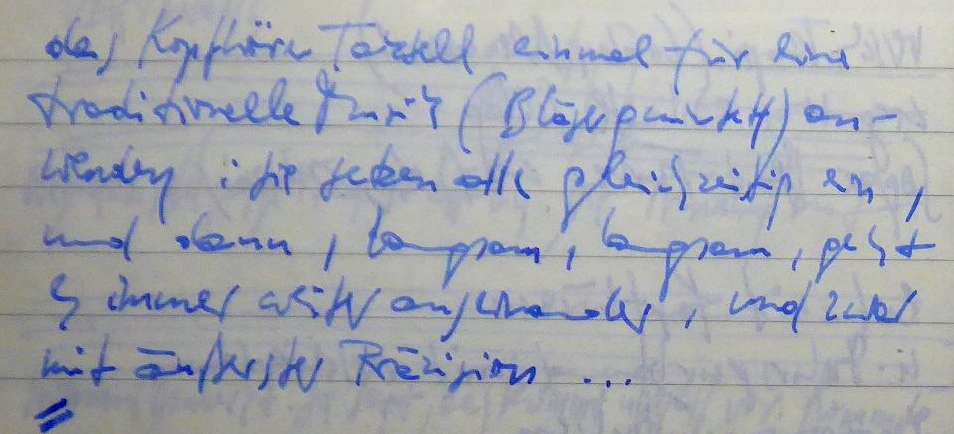 das Kopfhörer Tastell einmal für eine
traditionelle Musik (Bläserquintett) an-
wenden: sie setzen alle gleichzeitig ein,
und dann, langsam, langsam, geht
es immer weiter auseinander, und zwar
mit äußerster Präzision ...